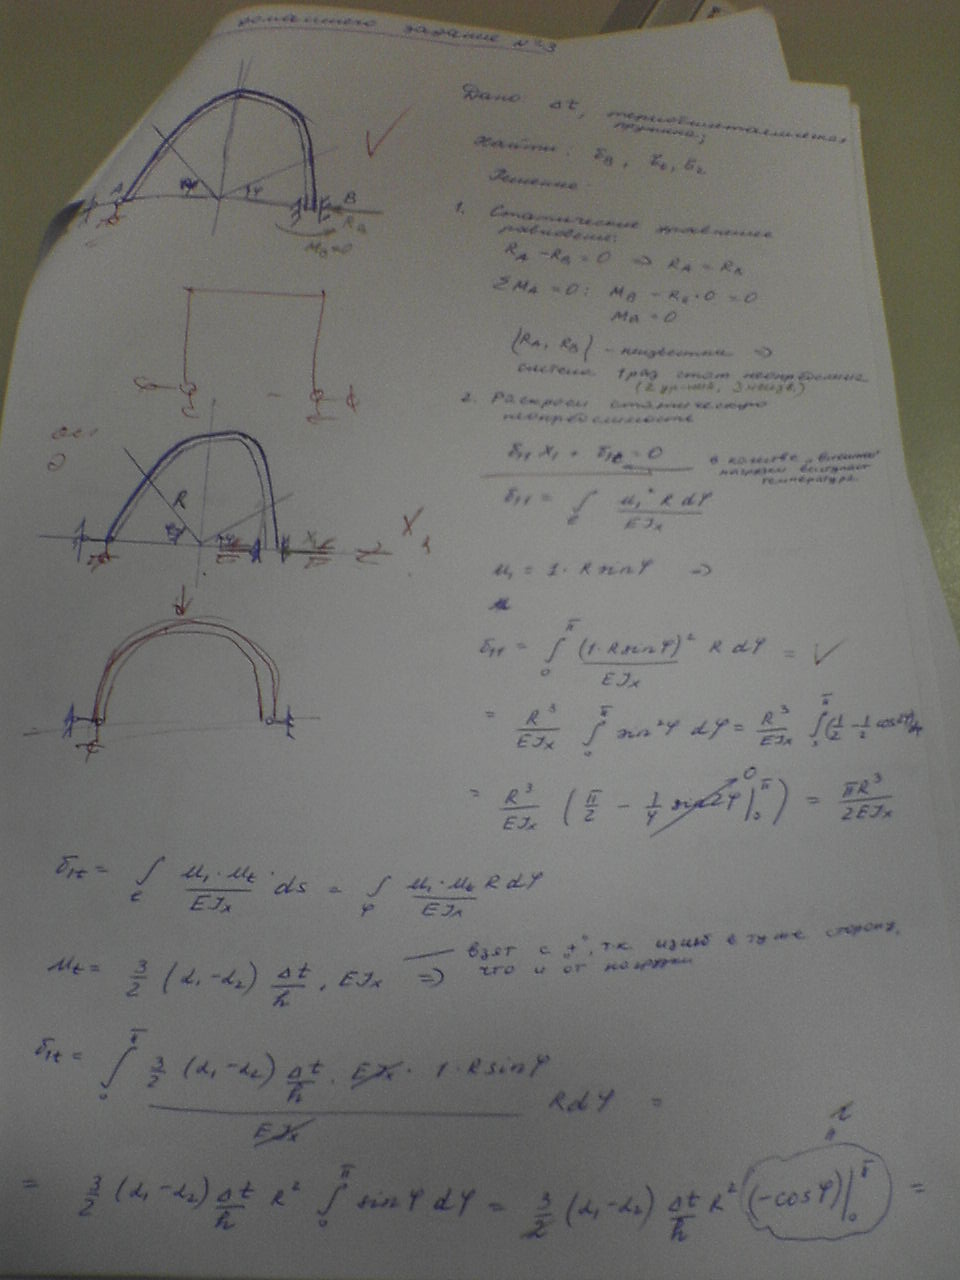 домашнего задание №3
Дано: Δt, термобиметаллическая
пружина;
Найти: σ_B, σ_1, σ_2
Решение:
A
φ
B
R_B
M_B=0
1. Статические уравнение
равновесие:
R_A - R_B = 0 ⇒ R_A = R_B
ΣM_A = 0: M_B - R_B·0 = 0
M_B = 0
(R_A, R_B) - неизвестны ⇒
система 1 раз стат. неопределимая
(2 ур-ний, 3 неизв.)
2. Раскроем статическую
неопределимость
δ_11 X_1 + δ_1t = 0
в качестве внешней
нагрузки выступает
температура
R
φ
X_1
δ_11 = ∫_e M_1² R dφ / EJx
M_1 = 1·R sinφ ⇒
δ_11 = ∫_0^π (1·R sinφ)² / EJx R dφ = ✓
= R³/EJx ∫_0^π sin²φ dφ = R³/EJx ∫_0^π (1/2 - 1/2 cos2φ)dφ
= R³/EJx (π/2 - 1/4 sin2φ|_0^π) = πR³/2EJx
0
δ_1t = ∫_e M_1·M_t / EJx · ds = ∫_φ M_1·M_t / EJx R dφ
M_t = 3/2 (α_1-α_2) Δt/h · EJx ⇒
взят с "+", т.к. изгиб в ту же сторону,
что и от нагрузки
δ_1t = ∫_0^π 3/2 (α_1-α_2) Δt/h · EJx · 1·R sinφ / EJx R dφ =
2
= 3/2 (α_1-α_2) Δt/h R² ∫_0^π sinφ dφ = 3/2 (α_1-α_2) Δt/h R² (-cosφ)|_0^π =